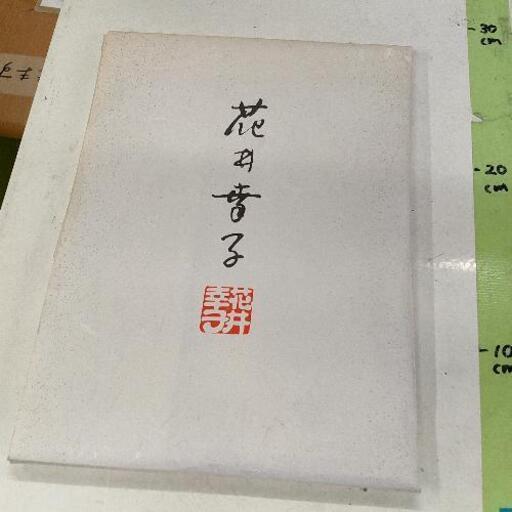 花井幸子
花井
幸子
30
cm
20
cm
10
cm